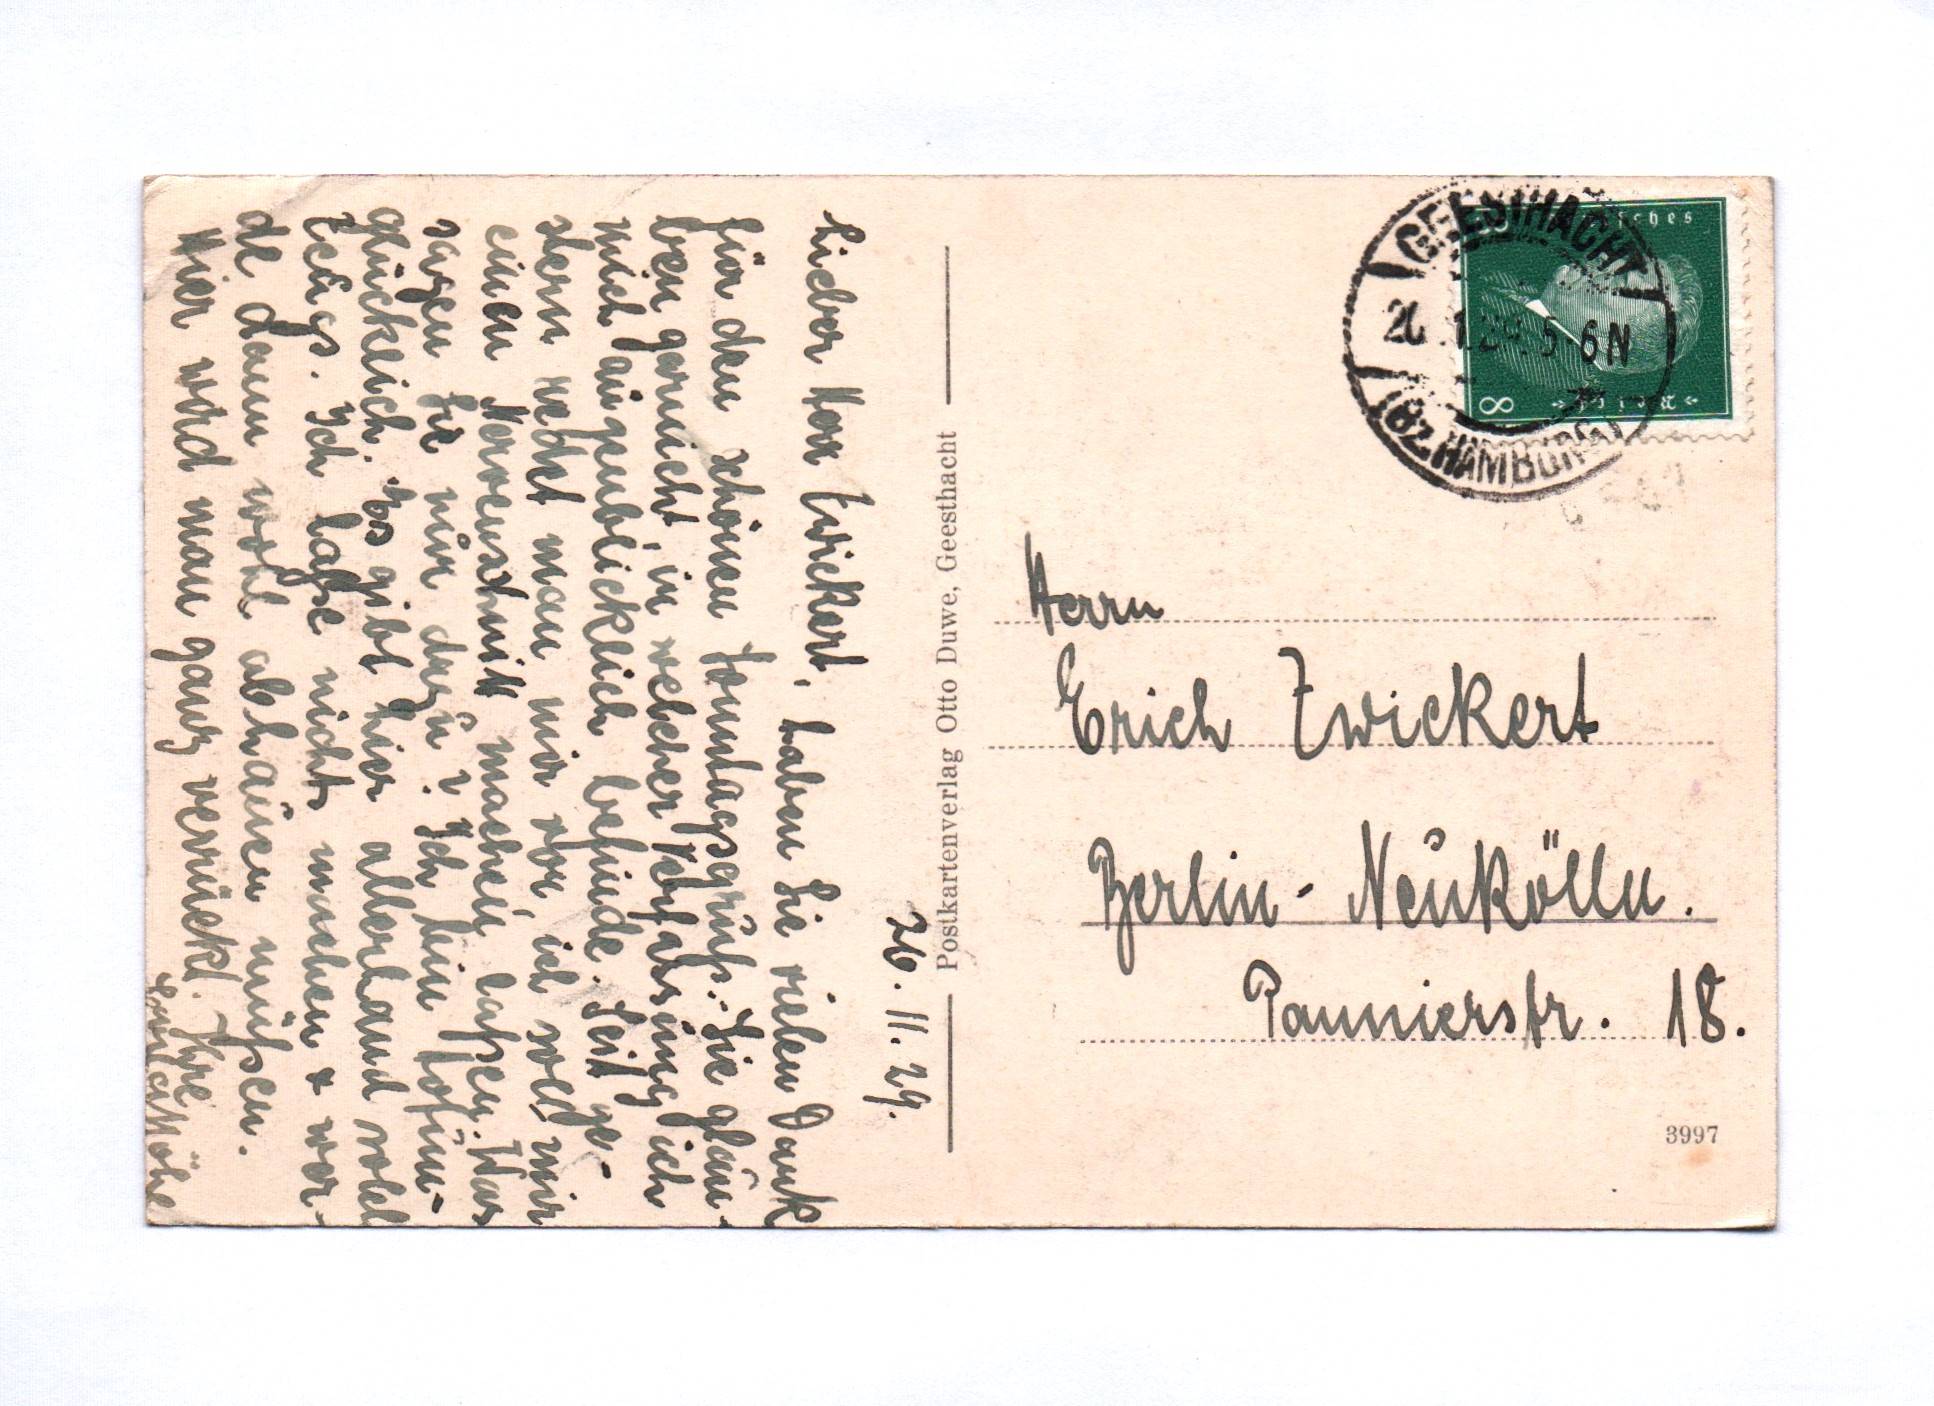 20. 11. 29.
Lieber Herr Zwickert, haben Sie vielen Dank
für den schönen Sonntagsgruß. Sie glau-
ben garnicht in welcher Verfassung ich
mich augenblicklich befinde. Seit ge-
stern redet man mir vor, ich soll mir
einen Herrenschnitt machen laßen. Was
sagen Sie nur dazu? Ich bin todun-
glücklich. Es gibt hier allerhand
Zeugs. Ich laße nicht & wer-
de dann wohl abhauen müßen.
Hier wird man ganz verrückt. Ihre
Postkartenverlag Otto Duwe, Geesthacht
GEESTHACHT
20.11.29. 5-6 N
(BZ. HAMBURG)
8
Herrn
Erich Zwickert
Berlin-Neukölln.
Pannierstr. 18.
3997